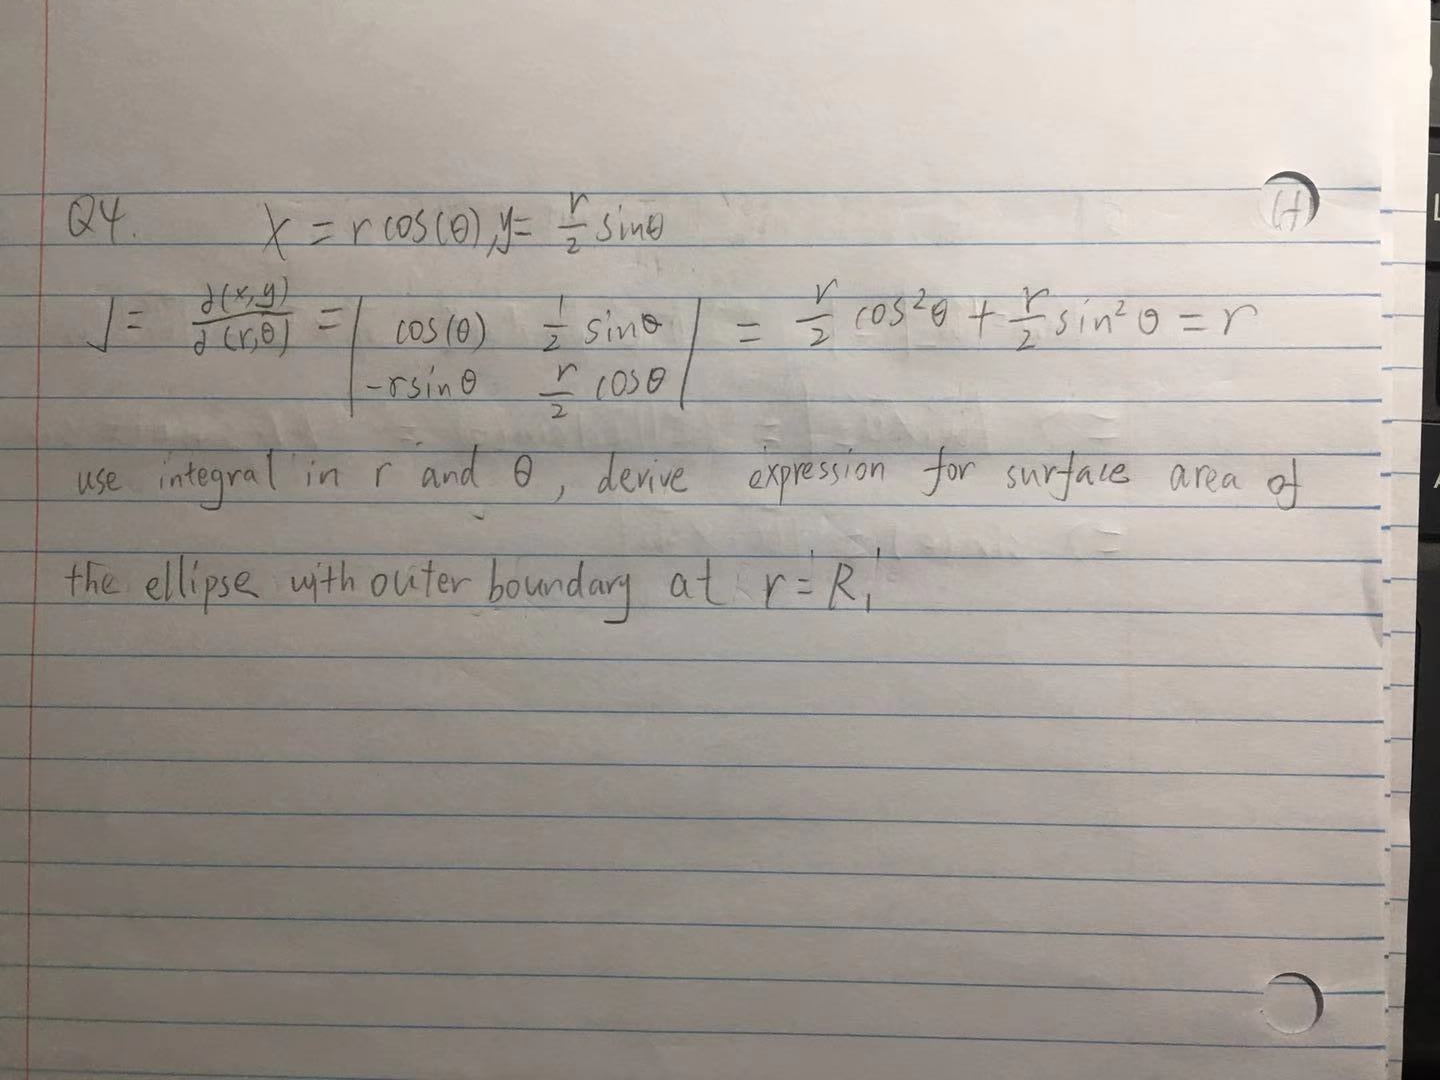 Q4. x = r cos(θ), y = r/2 sinθ
J = ∂(x,y)/∂(r,θ) = | cos(θ) 1/2 sinθ | = r/2 cos²θ + r/2 sin²θ = r
| -r sinθ r/2 cosθ |
use integral in r and θ, derive expression for surface area of
the ellipse with outer boundary at r = R₁